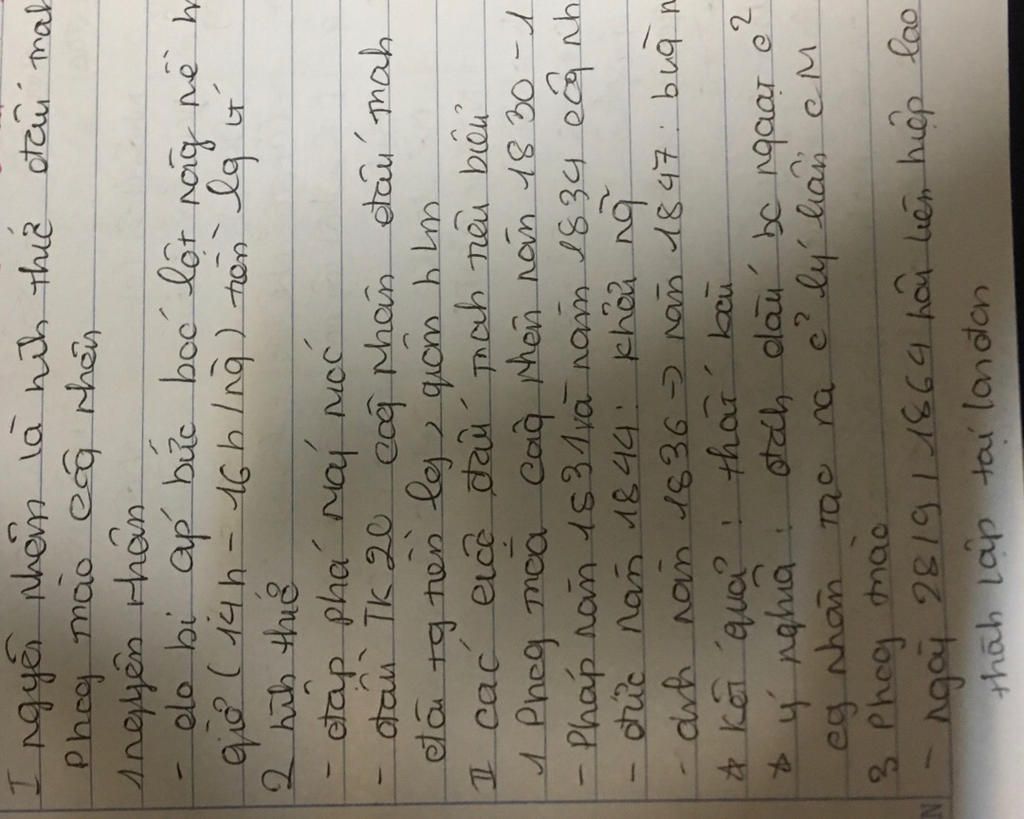 I nguyên nhân là hình thức đấu tranh
phog trào côg nhân
1 nguyên nhân
- do bị áp bức bóc lột nặg nề
giờ (14h - 16h/ng) tiền lg ít
2 hình thức
- đập phá máy móc
- đầu TK 20 côg nhân đấu tranh
đòi tg tiền lg, giảm h lm
II các cuộc đấu tranh tiêu biểu
1 Phog trào côg nhân năm 1830 - 1
- Pháp năm 1831 và năm 1834 côg nh
- đức năm 1844: khởi ng
- anh năm 1836 -> năm 1847:
* kết quả: thất bại
* ý nghĩa: đánh dấu bc ngoặt c²
cg nhân tạo ra c² lý luận cM
3 Phog trào
- ngày 28/9/1864 hội liên hiệp lao
thành lập tại london